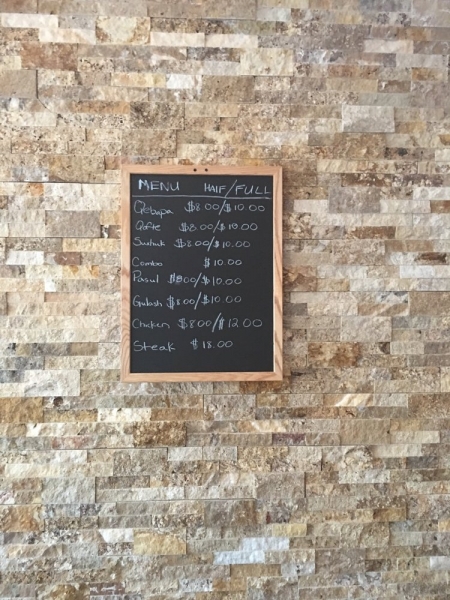 MENU HALF/FULL
Qebapa $8.00/$10.00
Qofte $8.00/$10.00
Suxhuk $8.00/$10.00
Combo $10.00
Pasul $8.00/$10.00
Gulash $8.00/$10.00
Chicken $8.00/$12.00
Steak $18.00